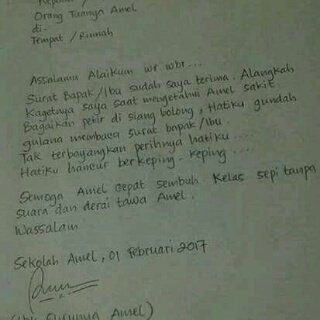 Kepada /
Orang Tuanya Amel
di.
Tempat / Rumah
Assalamu Alaikum wr wbr...
Surat Bapak/Ibu sudah saya terima. Alangkah
Kagetnya saya saat mengetahui Amel sakit
Bagaikan petir di siang bolong, Hatiku gundah
gulana membaca surat bapak/Ibu.
Tak terbayangkan perihnya hatiku ....
Hatiku hancur berkeping-keping ....
Semoga Amel cepat sembuh. Kelas sepi tanpa
suara dan derai tawa Amel.
Wassalam
Sekolah Amel, 01 Februari 2017
(Ibu Gurunya Amel)